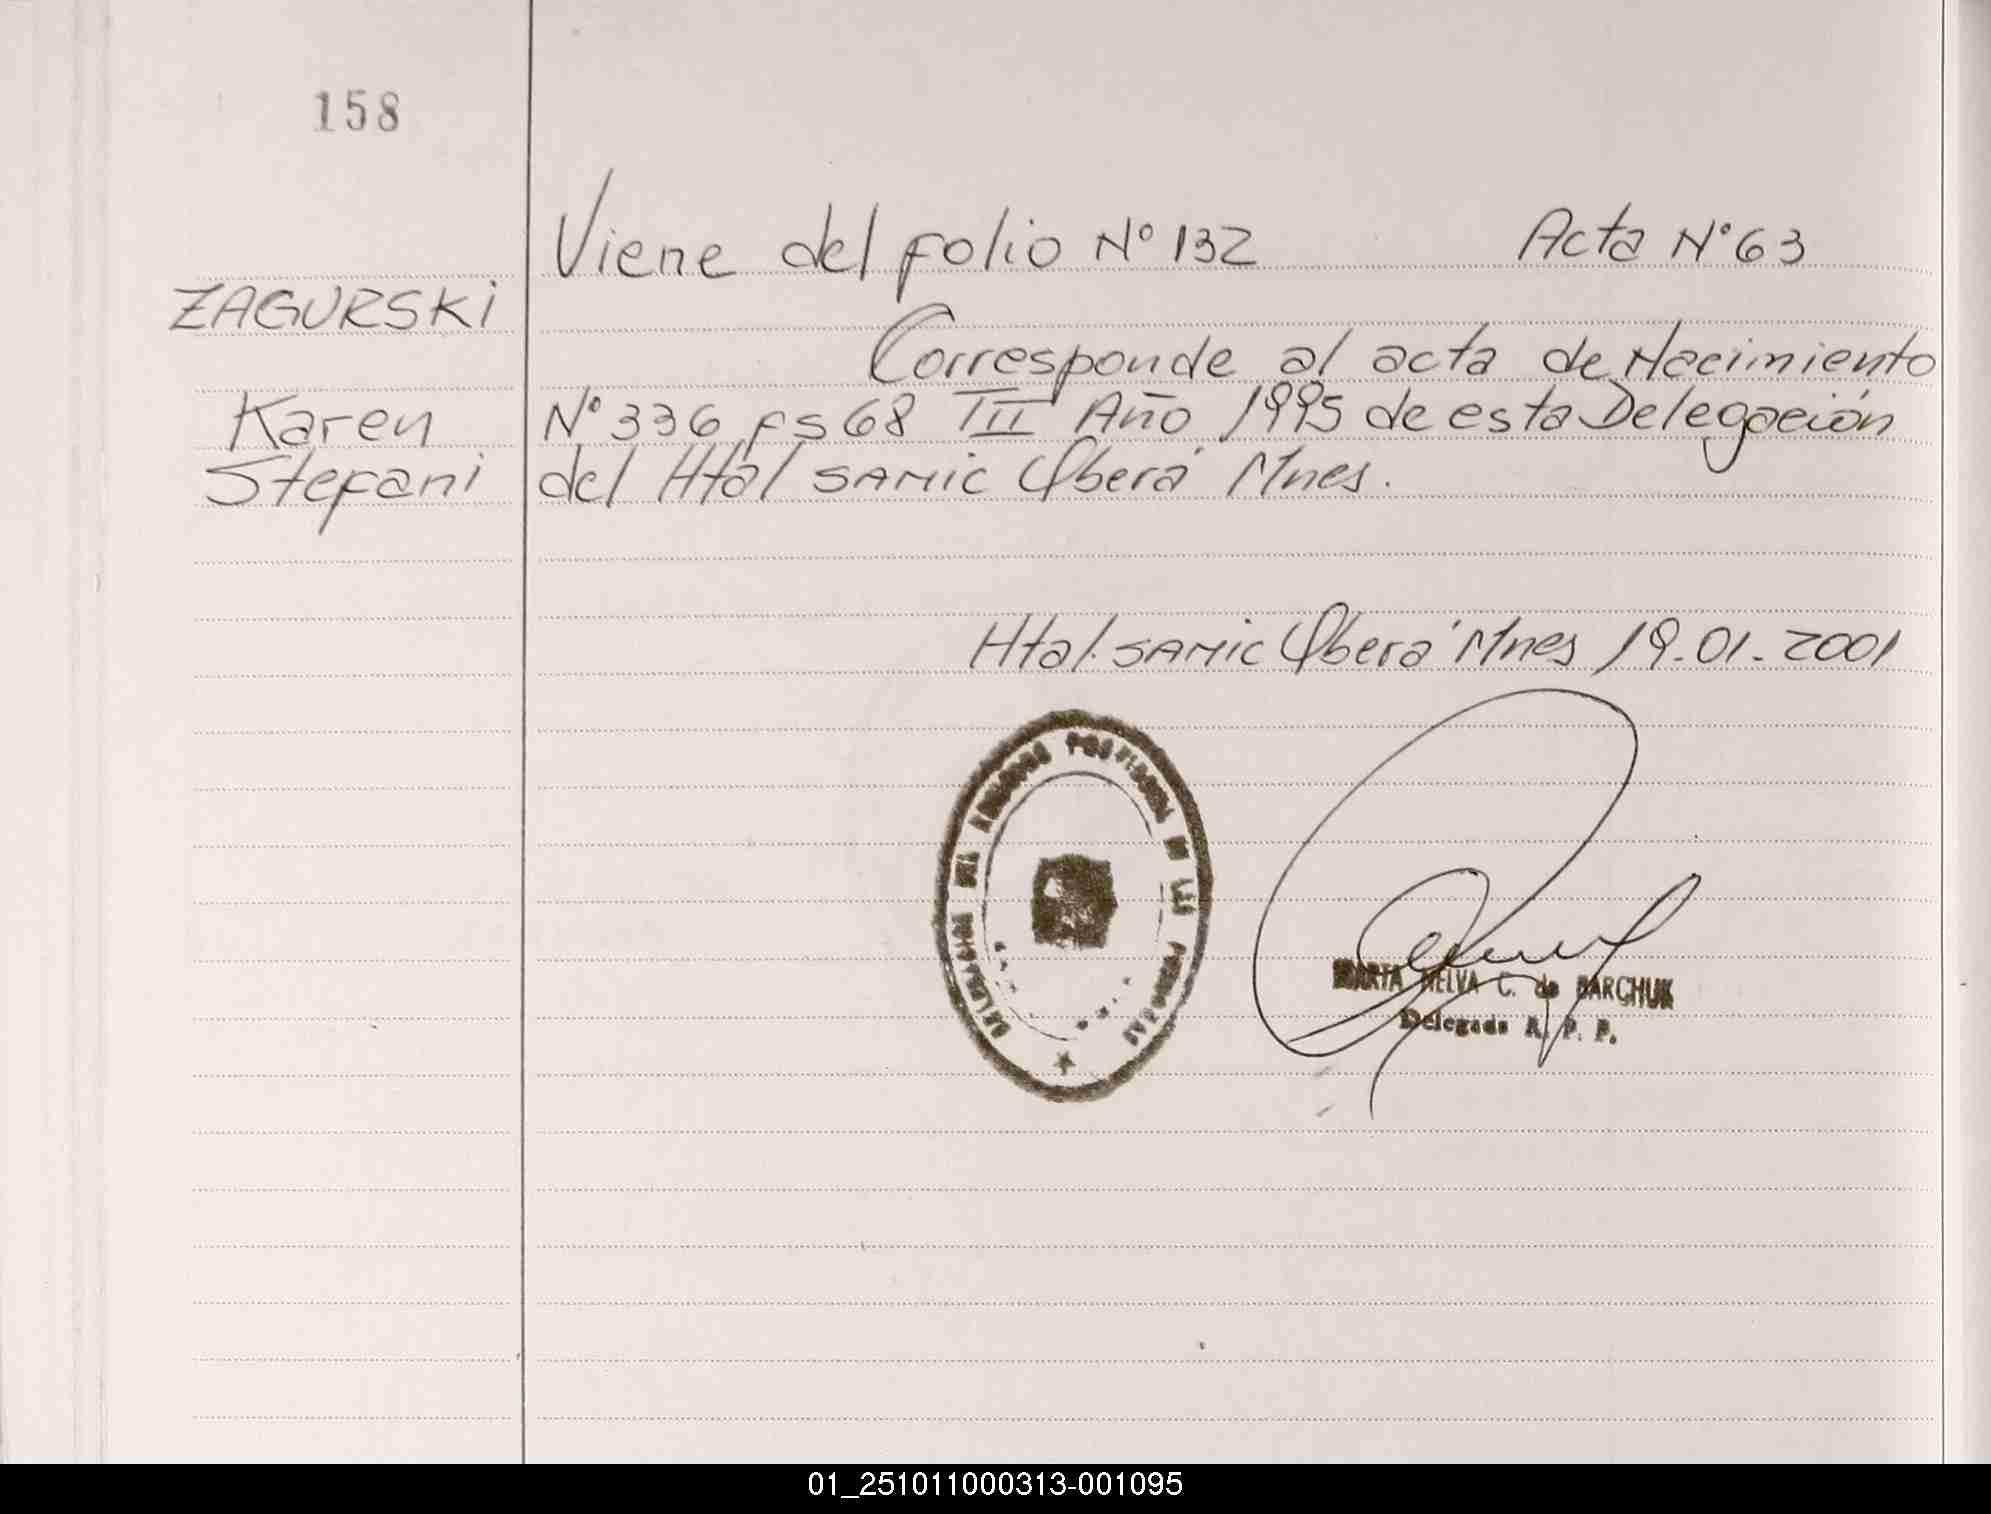 158
Viene del folio N° 132 Acta N° 63
ZAGURSKI
Corresponde al acta de Nacimiento
Karen
N° 336 fs 68 TIII Año 1995 de esta Delegación
Stefani
del Htal SAMIC Oberá Mnes.
Htal. SAMIC Oberá Mnes 19.01.2001
DEL REGISTRO PROVINCIAL DE LAS PERSONAS
MARTA NELVA C. de BARCHUK
Delegada R. P. P.
01_251011000313-001095